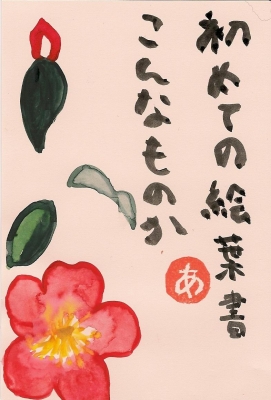 初めての絵葉書
こんなものか
あ